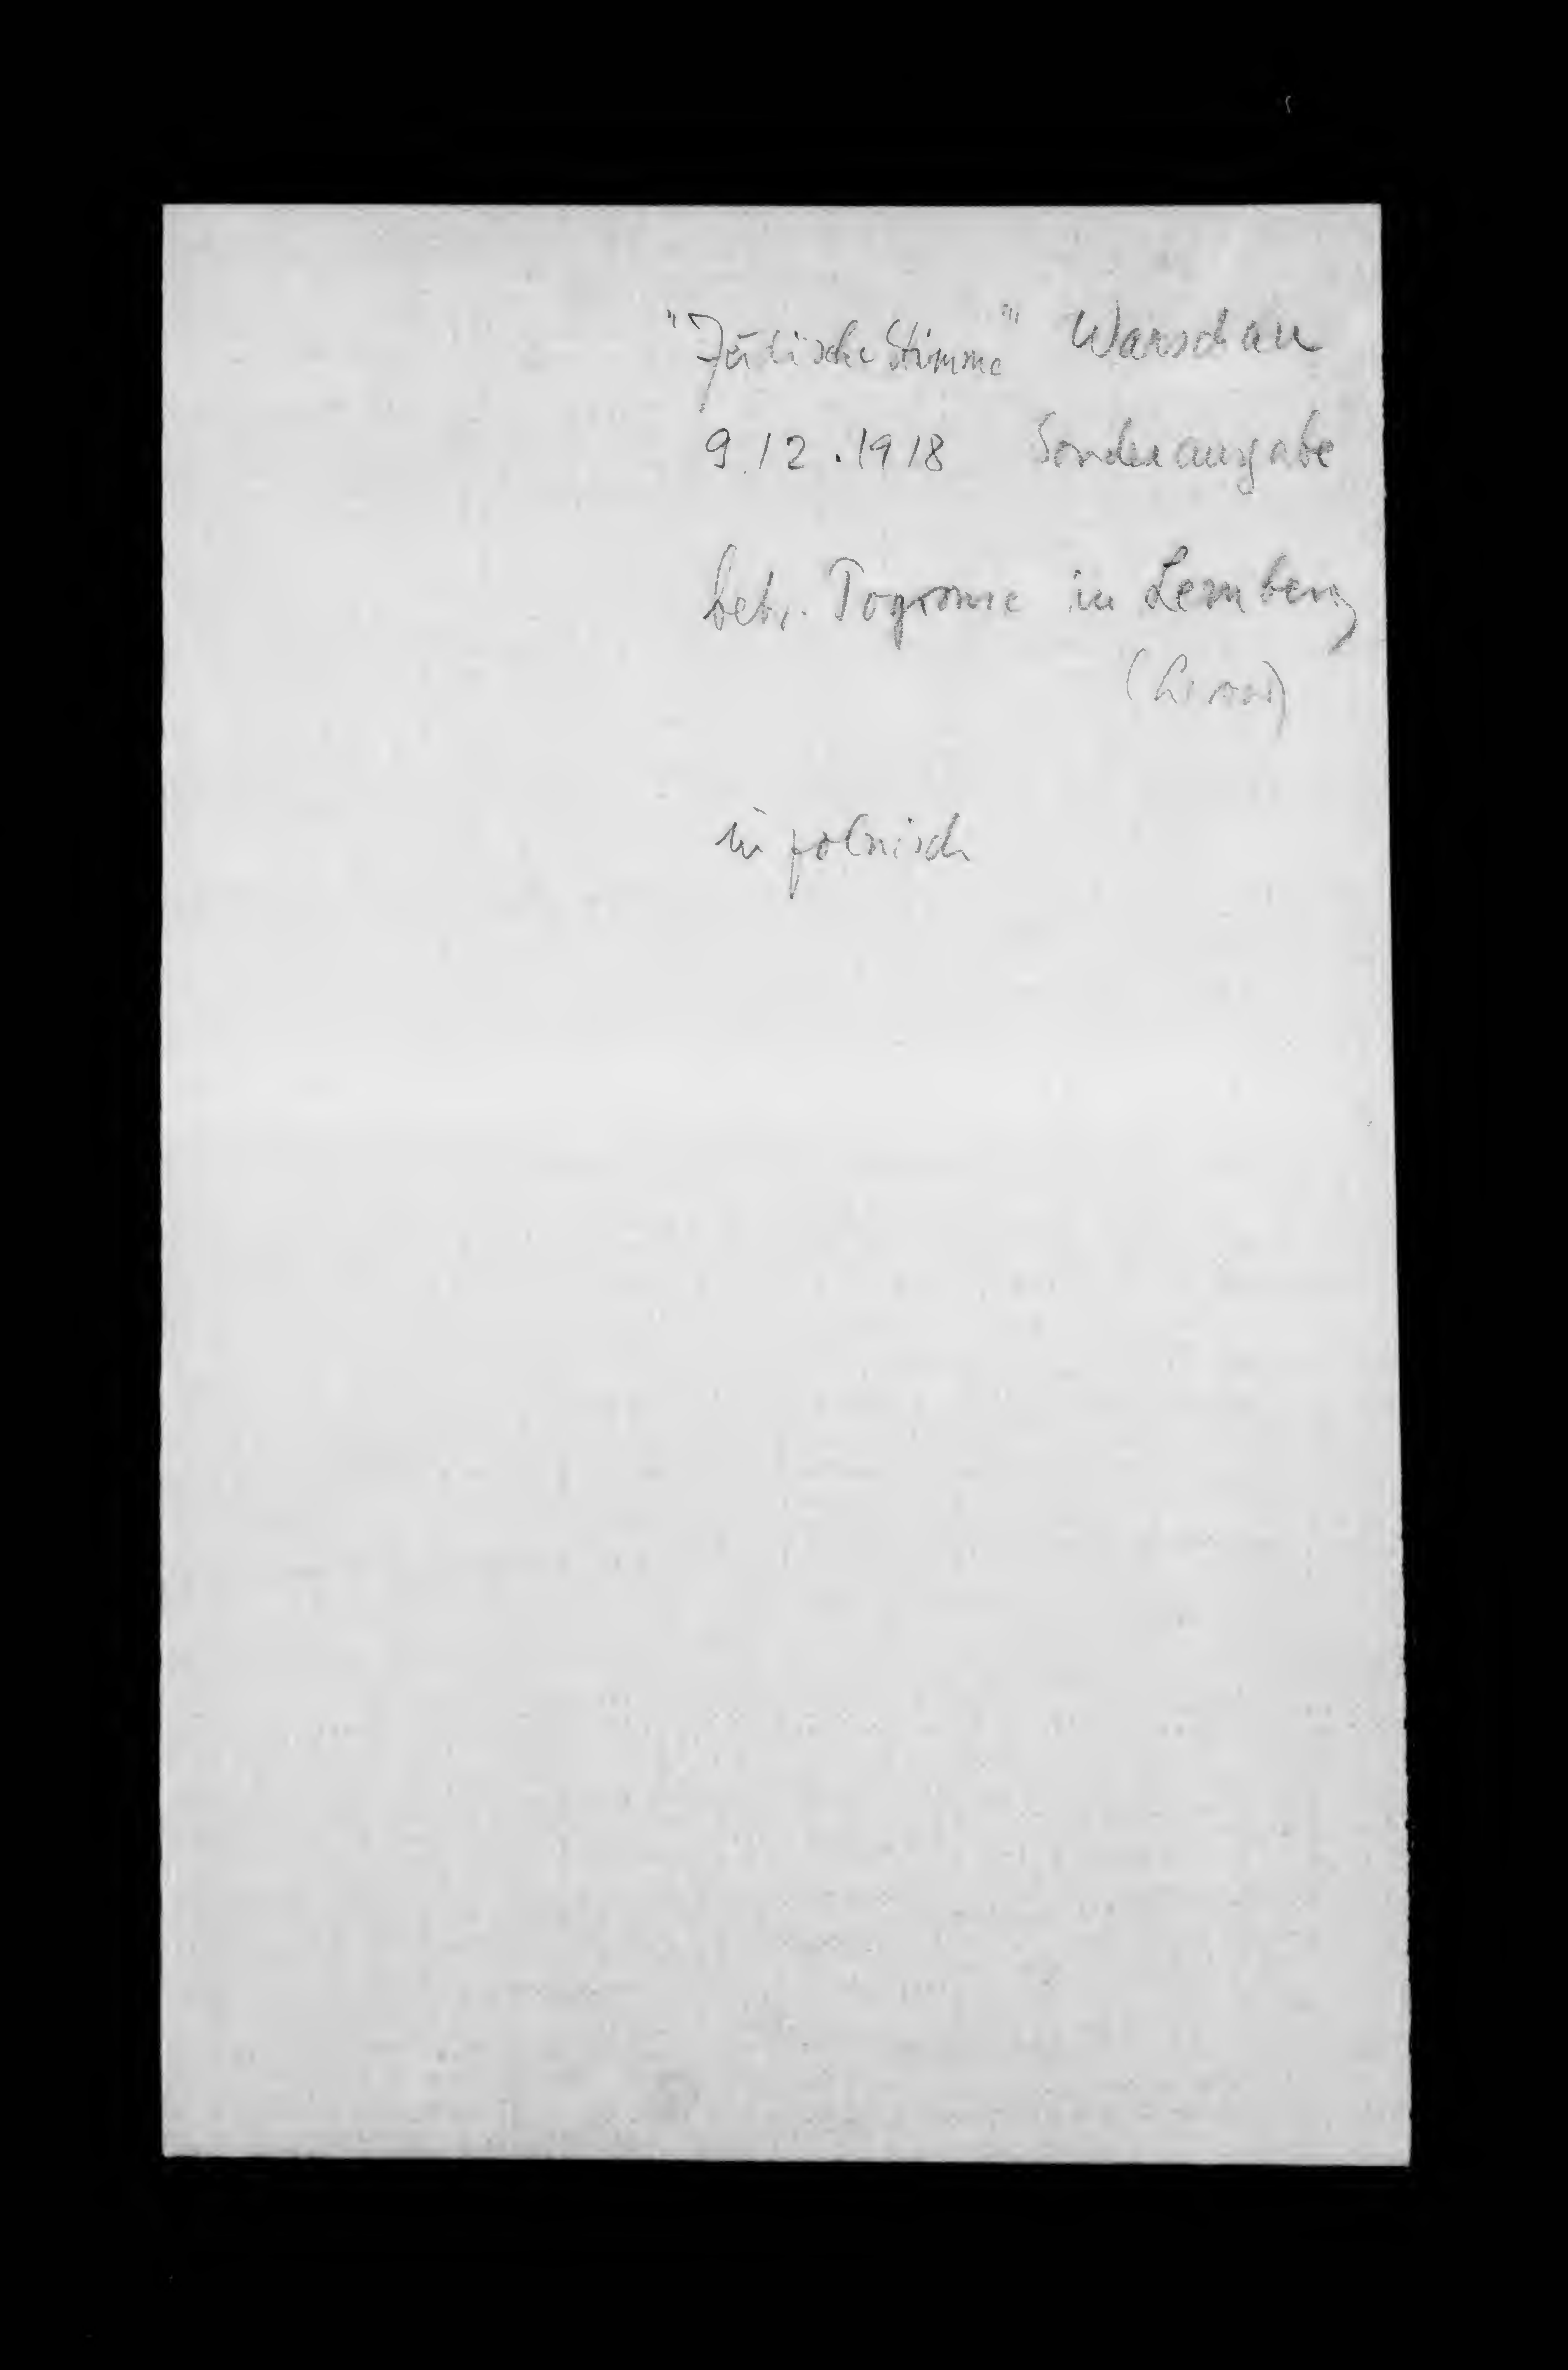 "Jüdische Stimme" Warschau
9.12.1918 Sonderausgabe
betr. Pogrome in Lemberg
(Lwow)
in polnisch